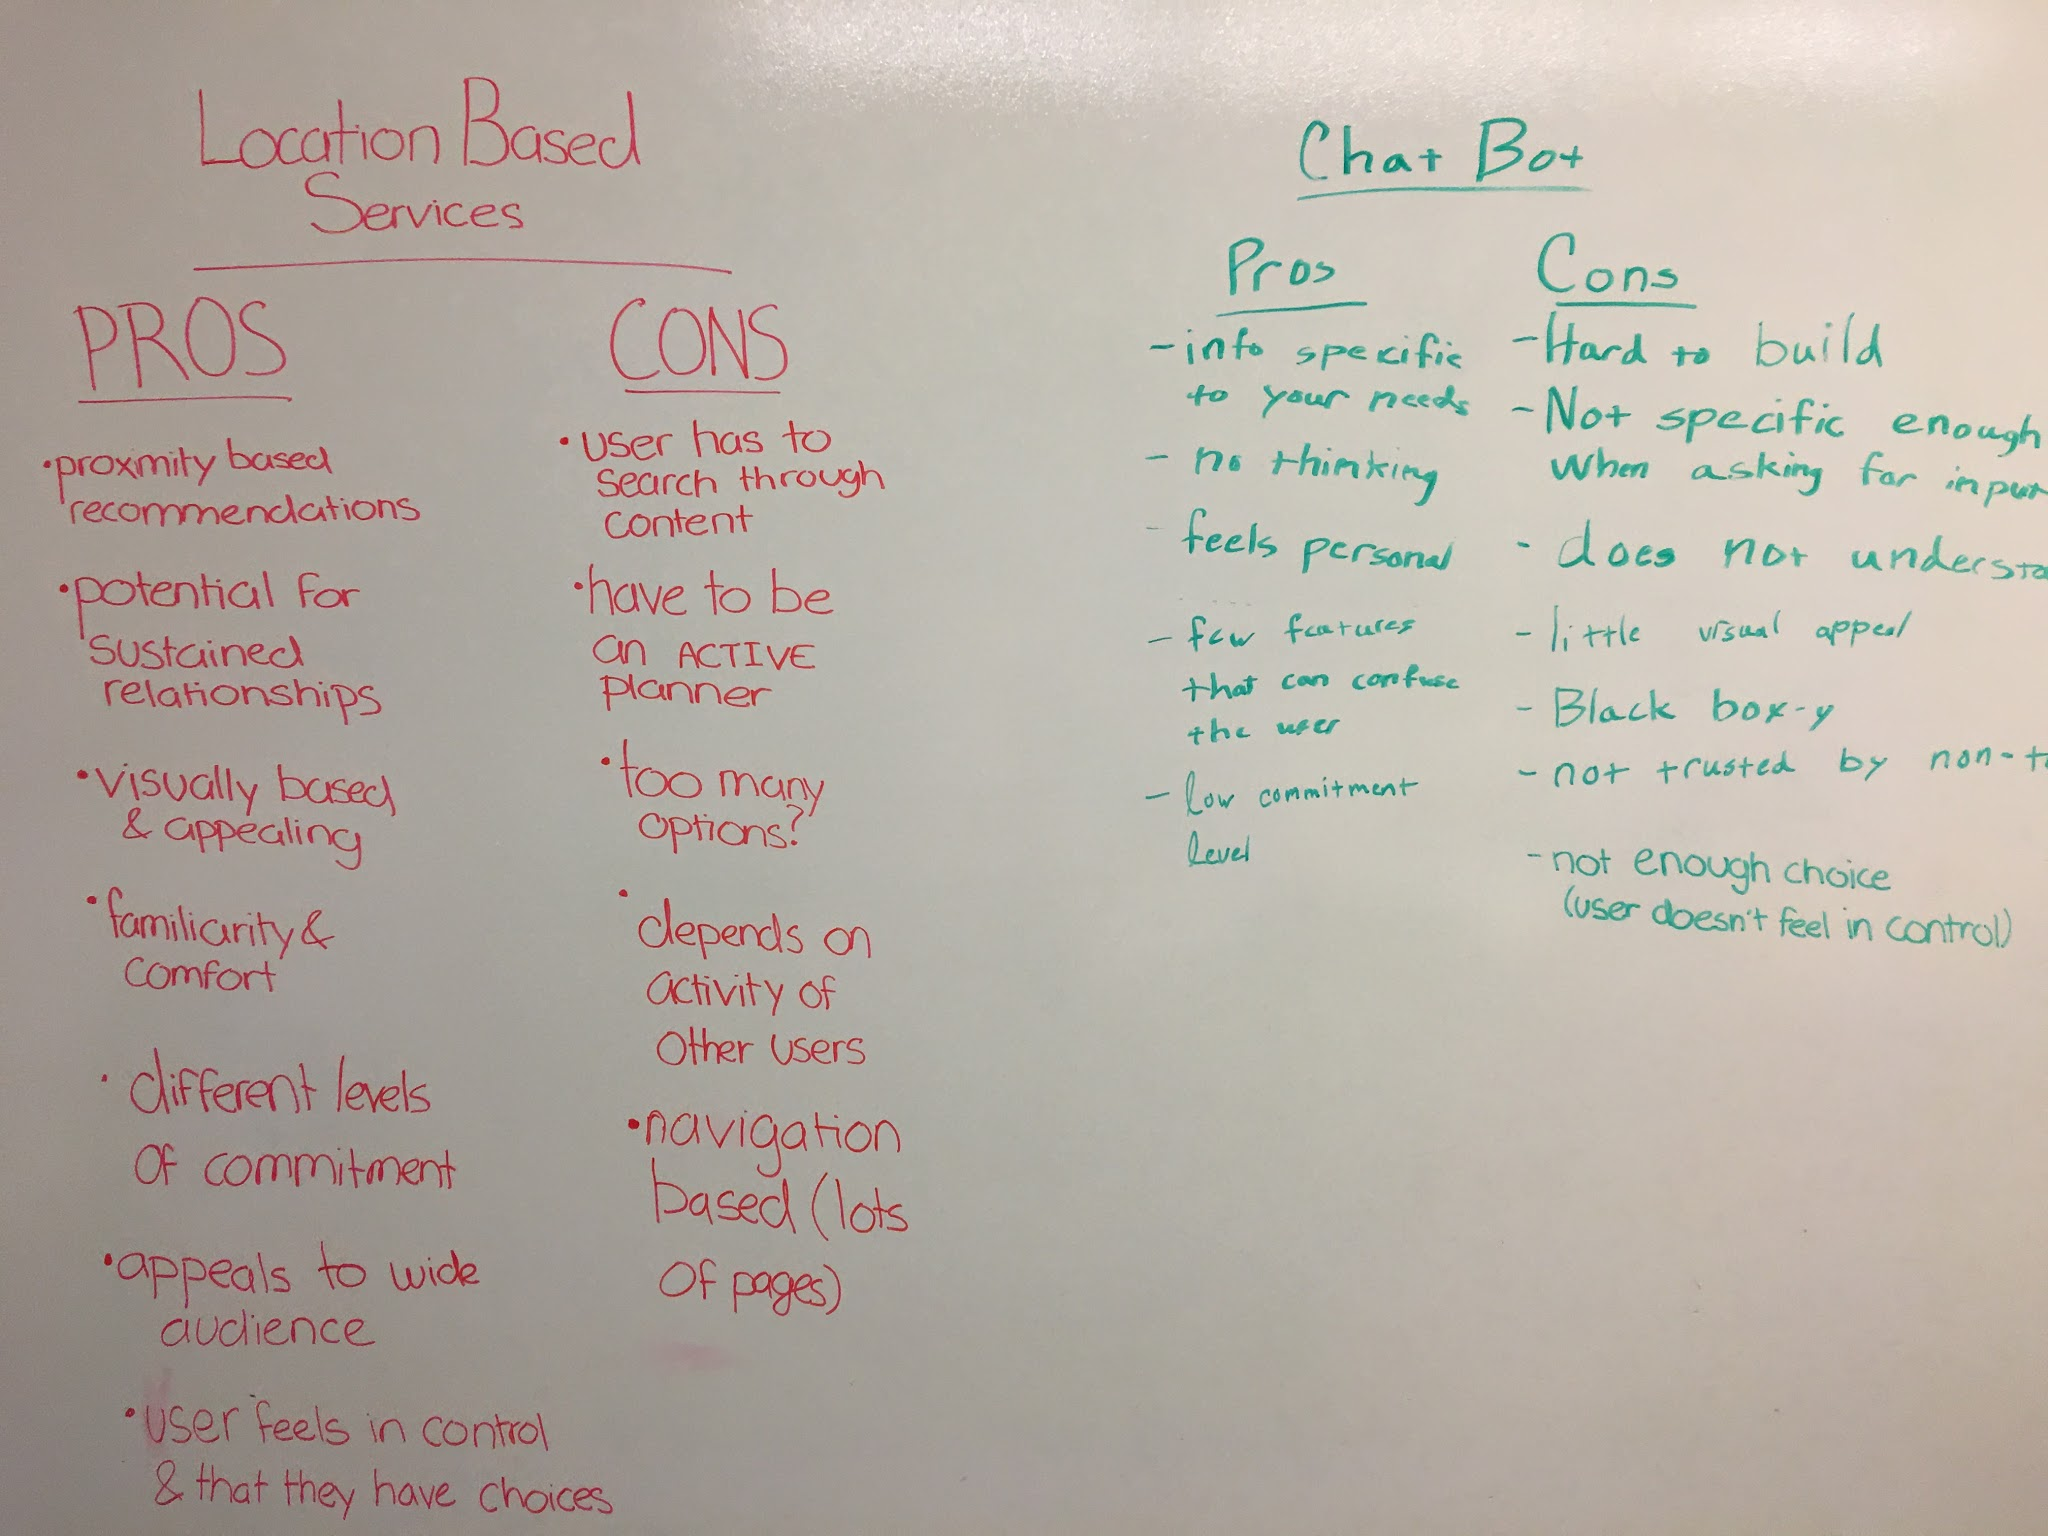 Location Based
Services
PROS
• proximity based
recommendations
• potential for
sustained
relationships
• visually based
& appealing
• familiarity &
comfort
• different levels
of commitment
• appeals to wide
audience
• user feels in control
& that they have choices
CONS
• user has to
search through
content
• have to be
an ACTIVE
planner
• too many
options?
• depends on
activity of
other users
• navigation
based (lots
of pages)
Chat Bot
Pros
- info specific
to your needs
- no thinking
- feels personal
- few features
that can confuse
the user
- low commitment
level
Cons
- Hard to build
- Not specific enough
when asking for input
- does not understa
- little visual appeal
- Black box-y
- not trusted by non-t
- not enough choice
(user doesn't feel in control)